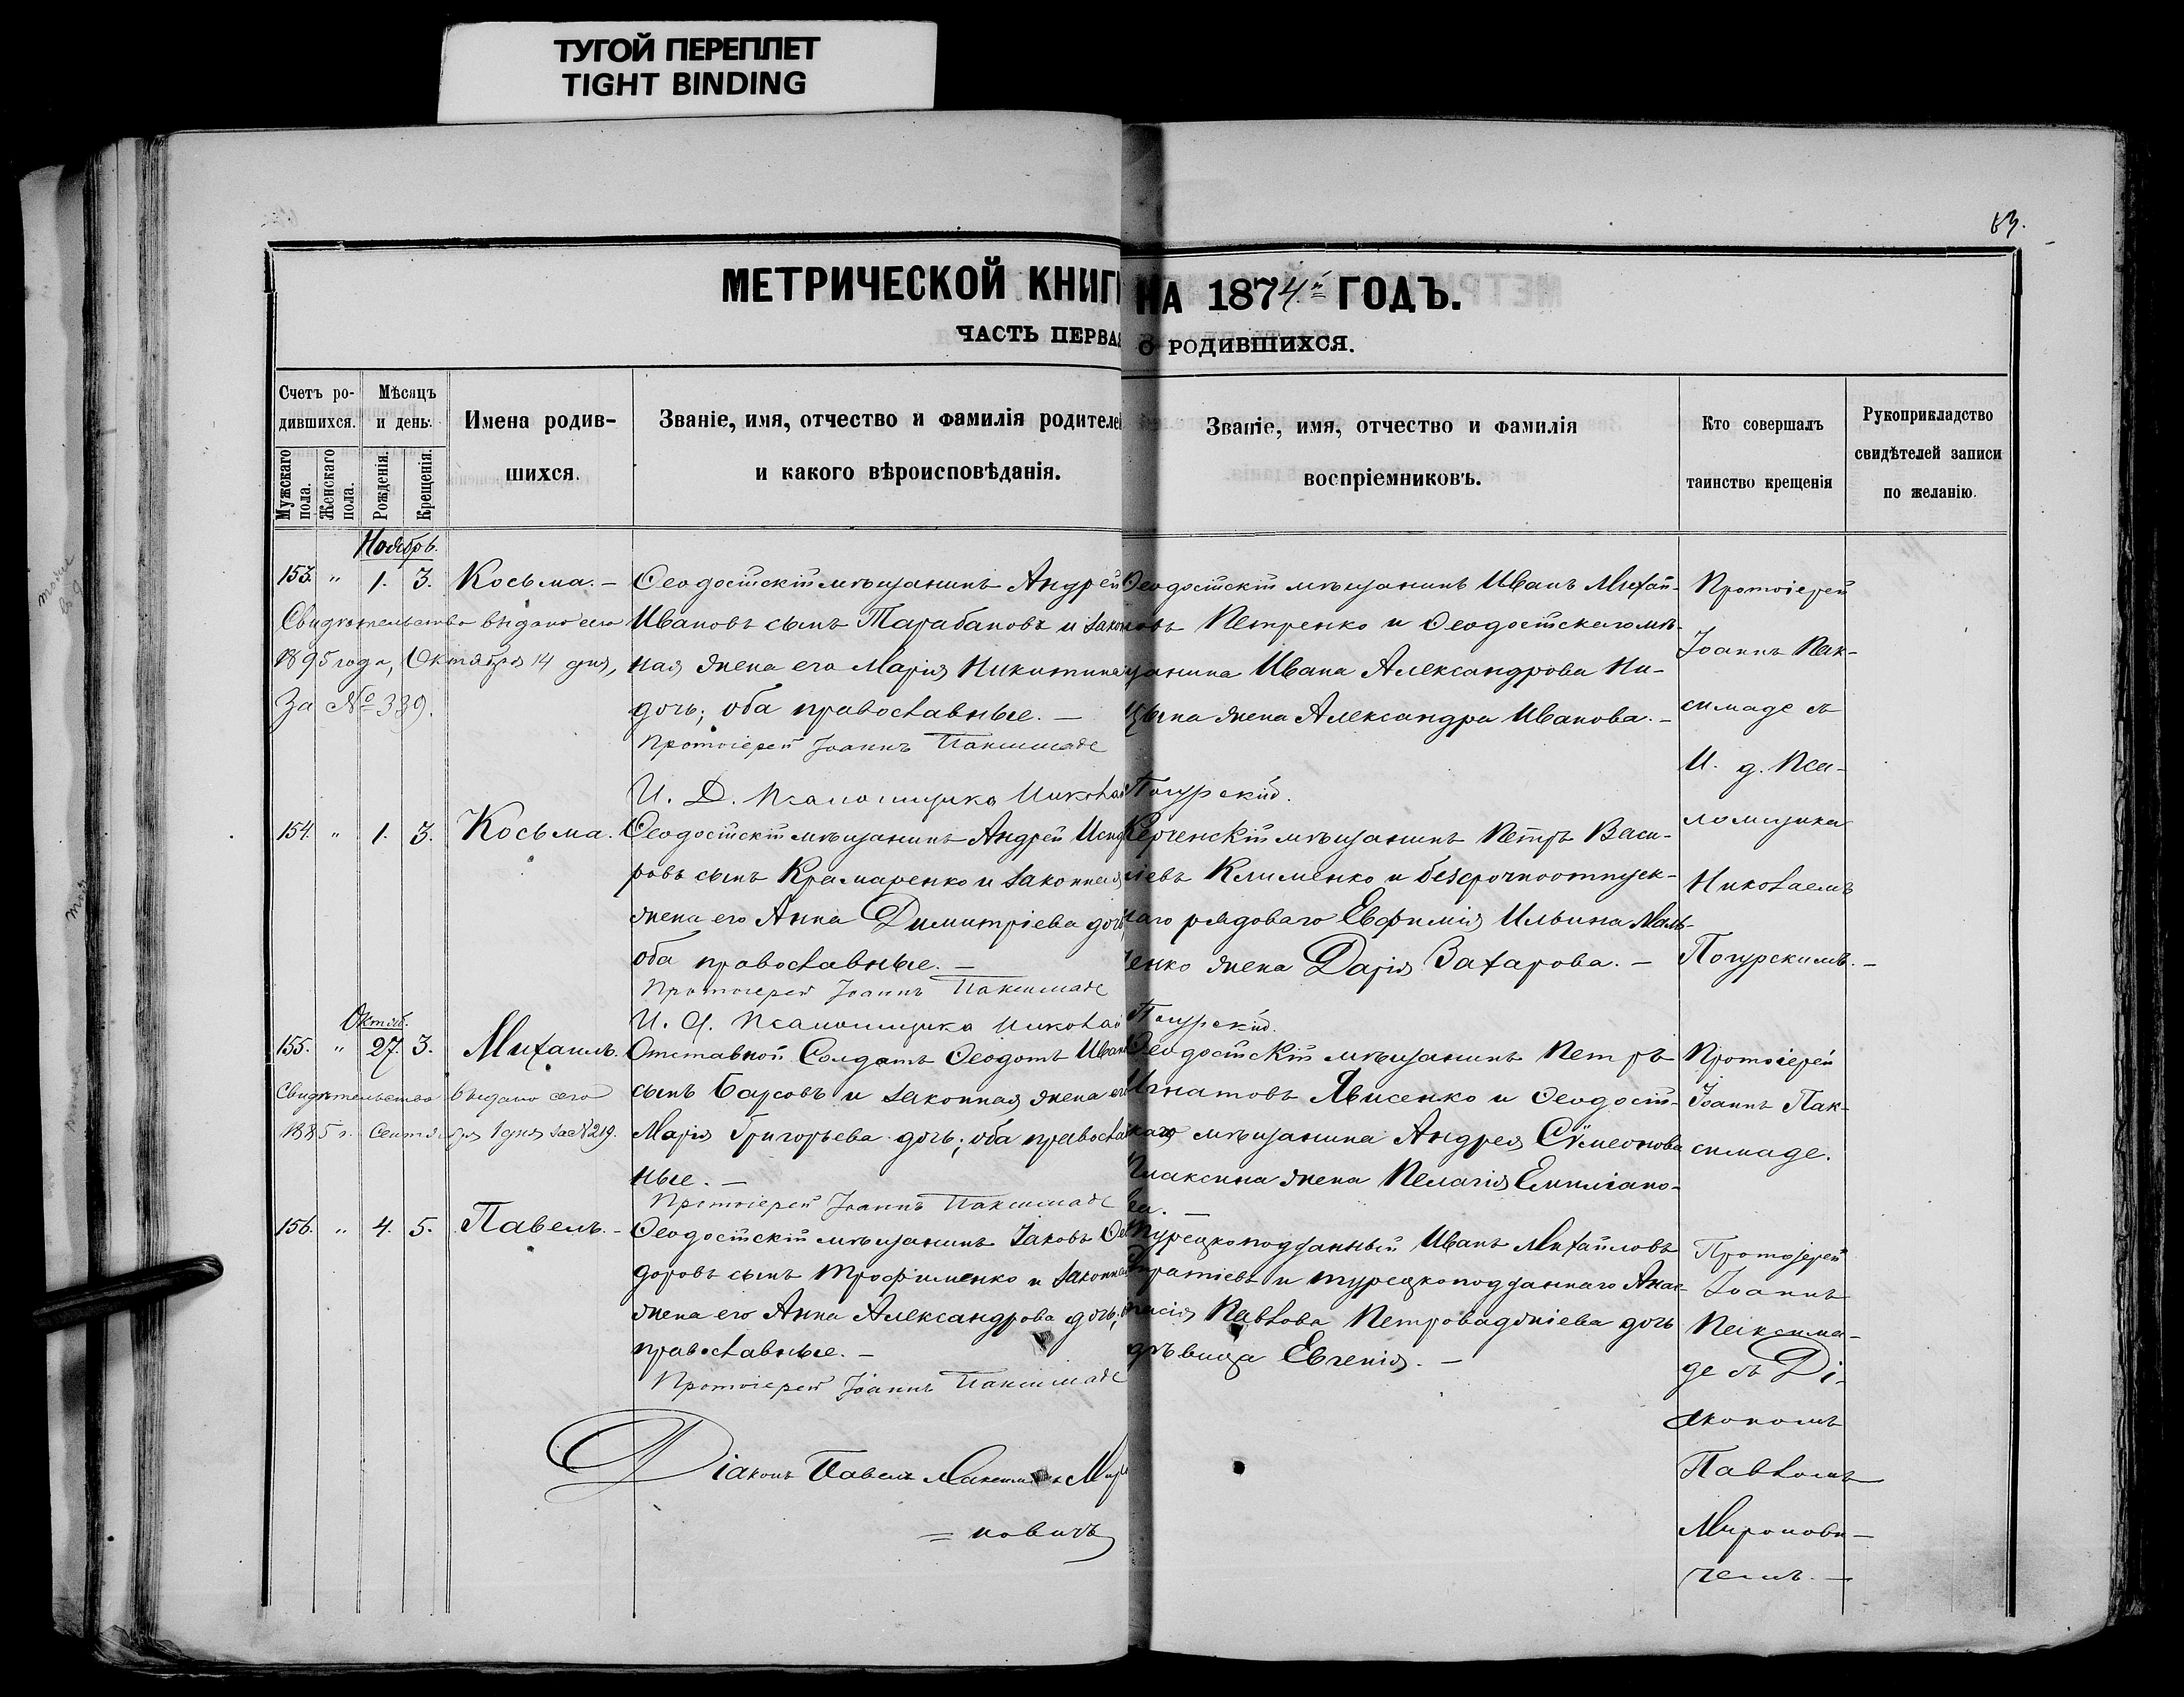 ТУГОЙ ПЕРЕПЛЕТ
TIGHT BINDING
63.
МЕТРИЧЕСКОЙ КНИГ НА 1874й ГОДЪ.
ЧАСТЬ ПЕРВАЯ О РОДИВШИХСЯ.
Счетъ ро-
дившихся.
Мужскаго пола.
Женскаго пола.
Мѣсяцъ
и день.
Рожденія.
Крещенія.
Имена родив-
шихся.
Званіе, имя, отчество и фамилія родителей
и какого вѣроисповѣданія.
Званіе, имя, отчество и фамилія
воспріемниковъ.
Кто совершалъ
таинство крещенія
Рукоприкладство
свидѣтелей записи
по желанію.
Ноябрь.
153. " 1. 3. Косьма. –
Свидѣтельство выдано сего
1895 года, Октября 14 дня,
За № 339.
Ѳеодосійскій мѣщанинъ Андрей
Ивановъ сынъ Тарабановъ и закон
ная жена его Марія Никитина
дочь; оба православные. –
Протоіерей Іоаннъ Паксимаде
И. Д. Псаломщика Николай Погурскій.
Ѳеодосійскій мѣщанинъ Иванъ Михай-
ловъ Петренко и Ѳеодосійскаго мѣ-
щанина Ивана Александрова Ни-
цына жена Александра Иванова. –
Протоіерей
Іоаннъ Пак-
симаде съ
И. д. Пса-
ломщика
Николаемъ
Погурскимъ. –
154. " 1. 3. Косьма.
Ѳеодосійскій мѣщанинъ Андрей Исид
ровъ сынъ Крамаренко и законная
жена его Анна Димитріева дочь
оба православные. –
Протоіерей Іоаннъ Паксимаде
И. Д. Псаломщика Николай Погурскій.
Керченскій мѣщанинъ Петръ Васи-
ліевъ Клименко и безсрочноотпуск-
наго рядоваго Евфимія Ильина Маль-
ченко жена Дарія Захарова. –
Октяб.
155. " 27. 3. Михаилъ.
Свидѣтельство выдано сего
1885 г. Сентября 1 дня за № 219.
Отставной Солдатъ Ѳеодотъ Иван
сынъ Барсовъ и законная жена его
Марія Григорьева дочь; оба правосла
ные. –
Протоіерей Іоаннъ Паксимаде
Ѳеодосійскій мѣщанинъ Петръ
Игнатовъ Лысенко и Ѳеодосій-
скаго мѣщанина Андрея Сѵмеонова
Плаксина жена Пелагія Емиліано-
ва. –
Протоіерей
Іоаннъ Пак-
симаде.
156. " 4. 5. Павелъ. –
Ѳеодосійскій мѣщанинъ Іаковъ Ѳе
доровъ сынъ Трофименко и законная
жена его Анна Александрова дочь;
православные. –
Протоіерей Іоаннъ Паксимаде
Турецкоподданный Иванъ Михайловъ
и турецкоподданнаго Анас-
тасія Павлова дочь
дѣвица Евгенія. –
Протоіерей
Іоаннъ
Паксима-
де съ Ді-
акономъ
Павломъ
Миронови-
чемъ. –
Діаконъ Павелъ Миро
= новичъ